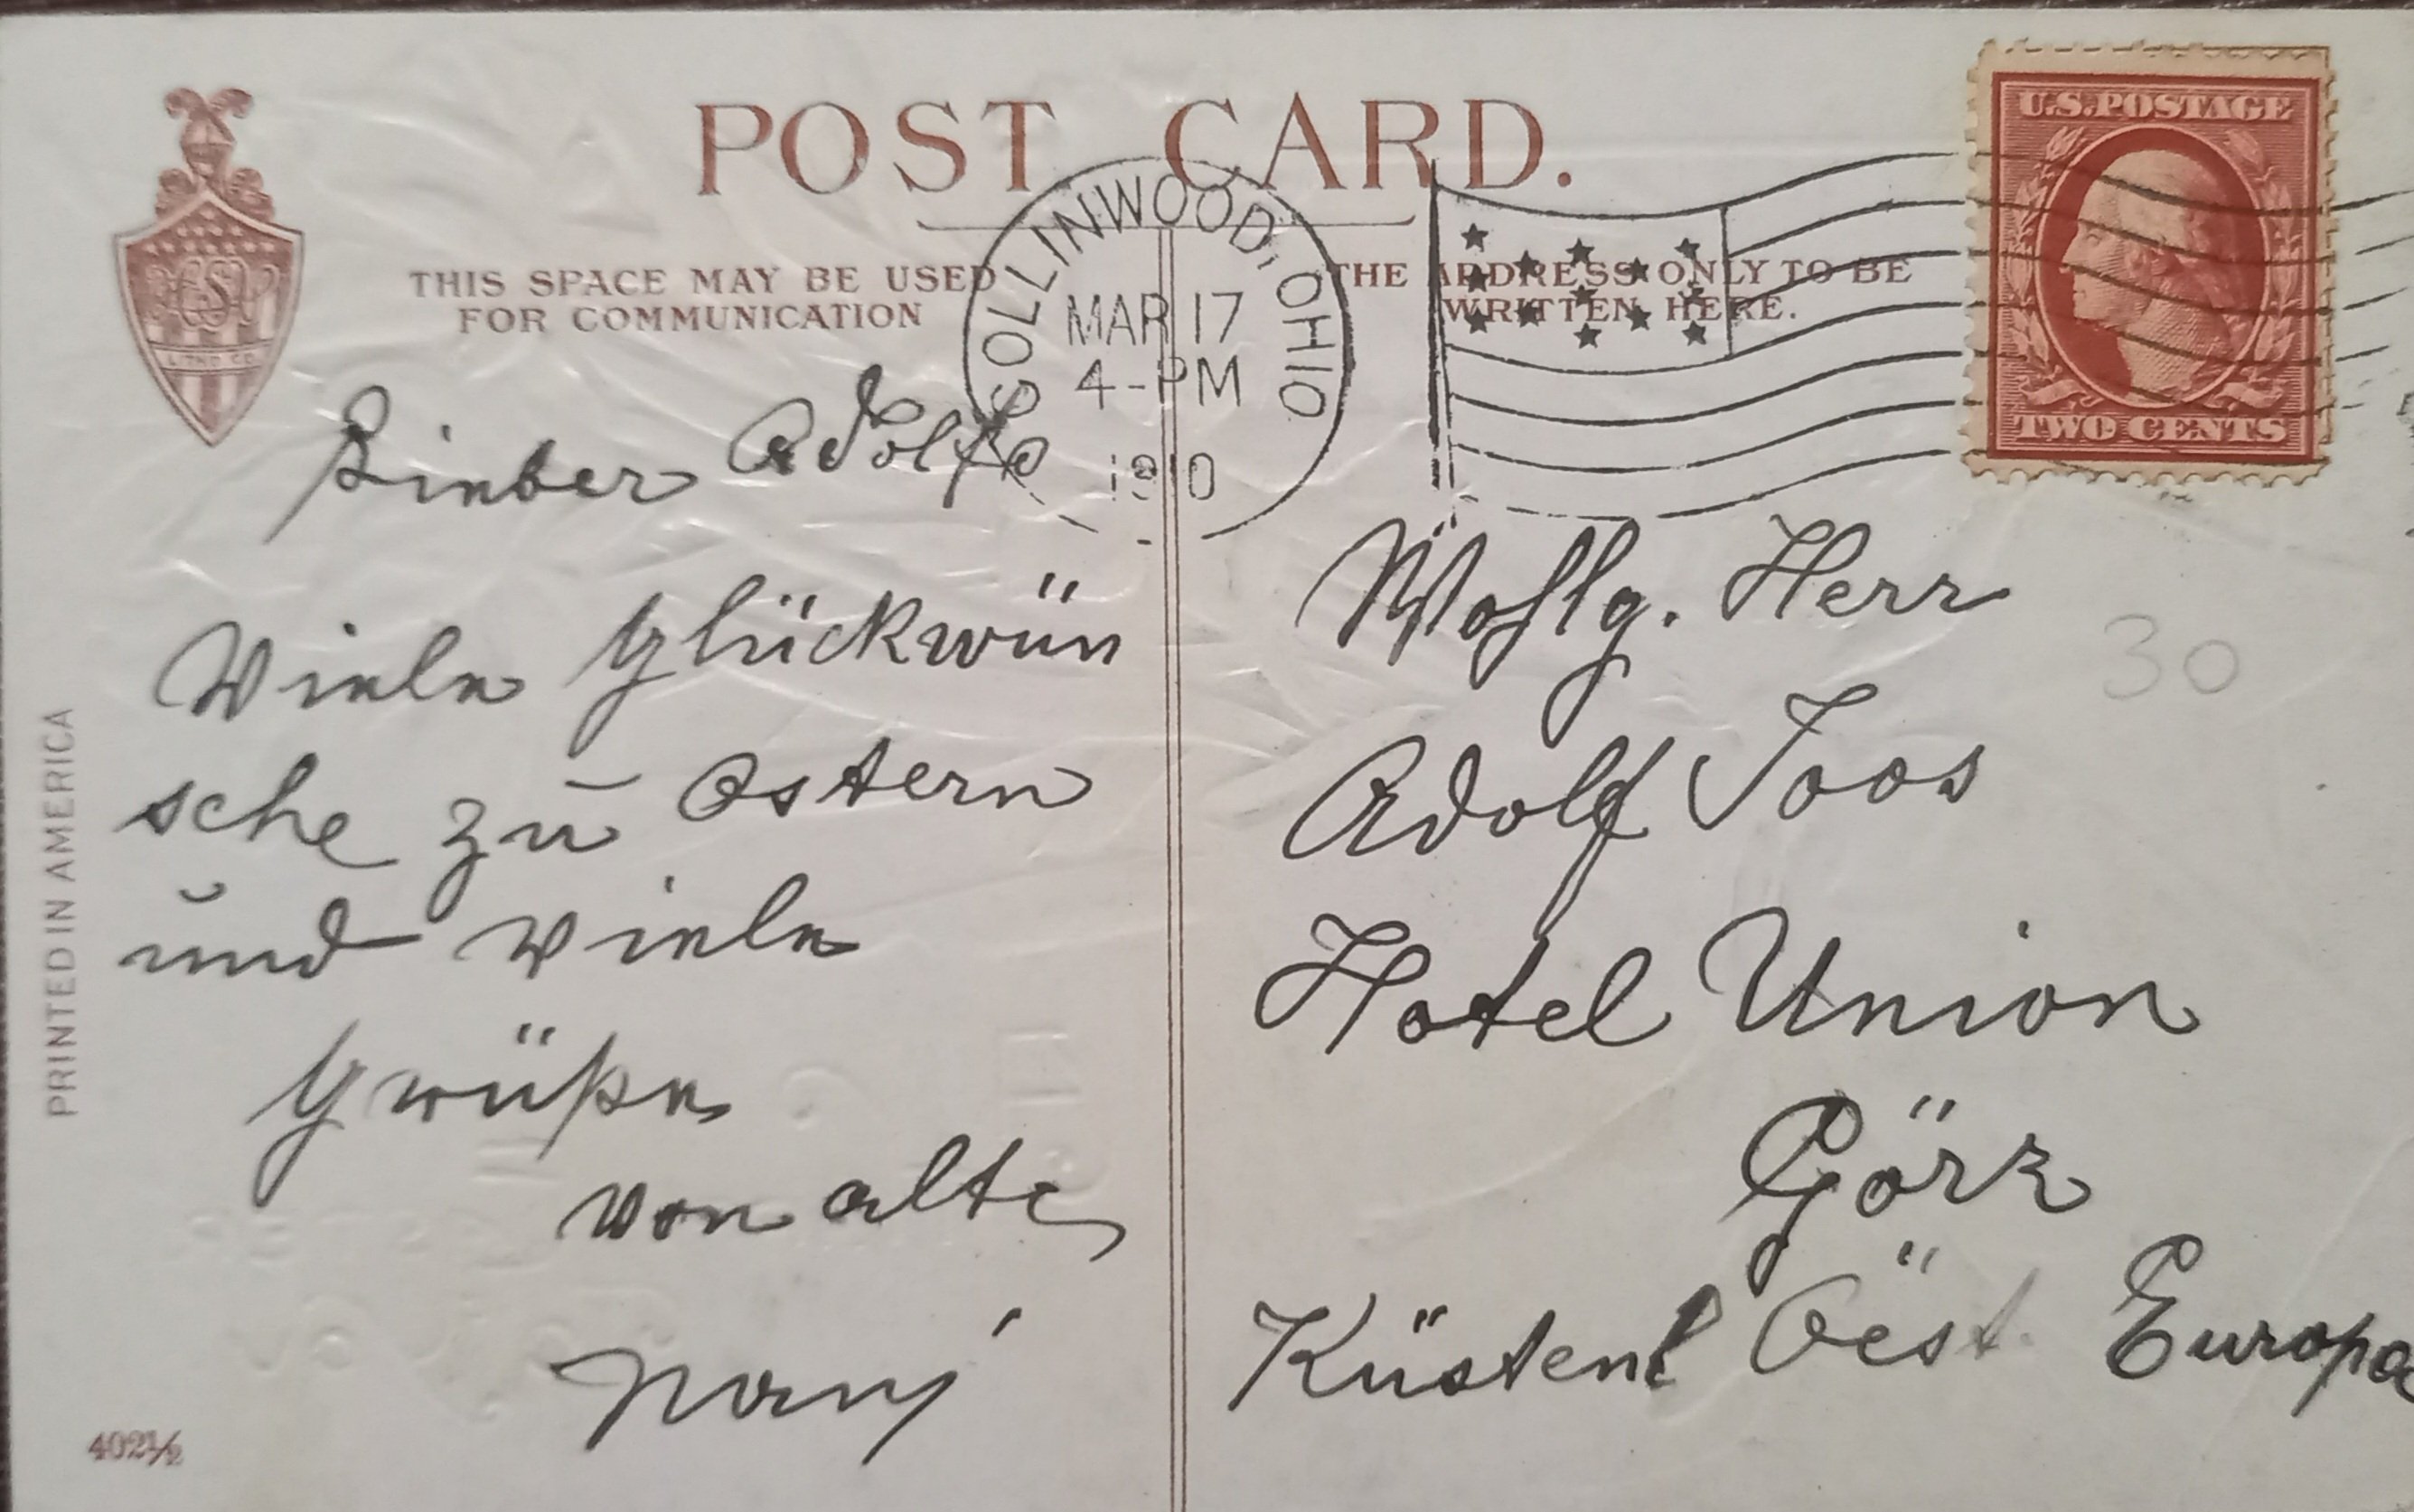 POST CARD.
THIS SPACE MAY BE USED
FOR COMMUNICATION
THE ADDRESS ONLY TO BE
WRITTEN HERE.
COLLINWOOD, OHIO
MAR 17
4-PM
1910
U.S. POSTAGE
TWO CENTS
LITHO CO.
Lieber Adolf
Viele Glückwün
sche zu Ostern
und viele
Grüße
von alte
Wohlg. Herr
Adolf Joos
Hotel Union
Görz
Küstenl Öest. Europa
30
PRINTED IN AMERICA
402½